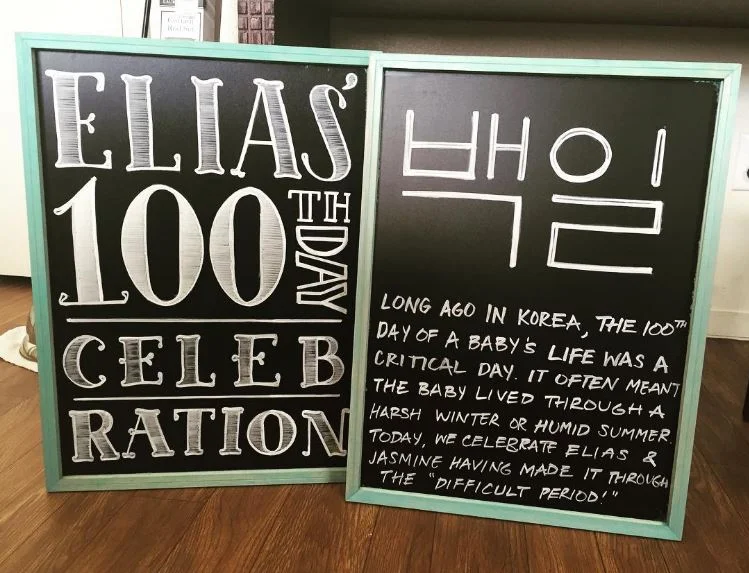 ELIAS'
100TH DAY
CELEB
RATION
백일
LONG AGO IN KOREA, THE 100TH
DAY OF A BABY'S LIFE WAS A
CRITICAL DAY. IT OFTEN MEANT
THE BABY LIVED THROUGH A
HARSH WINTER OR HUMID SUMMER.
TODAY, WE CELEBRATE ELIAS &
JASMINE HAVING MADE IT THROUGH
THE "DIFFICULT PERIOD!"